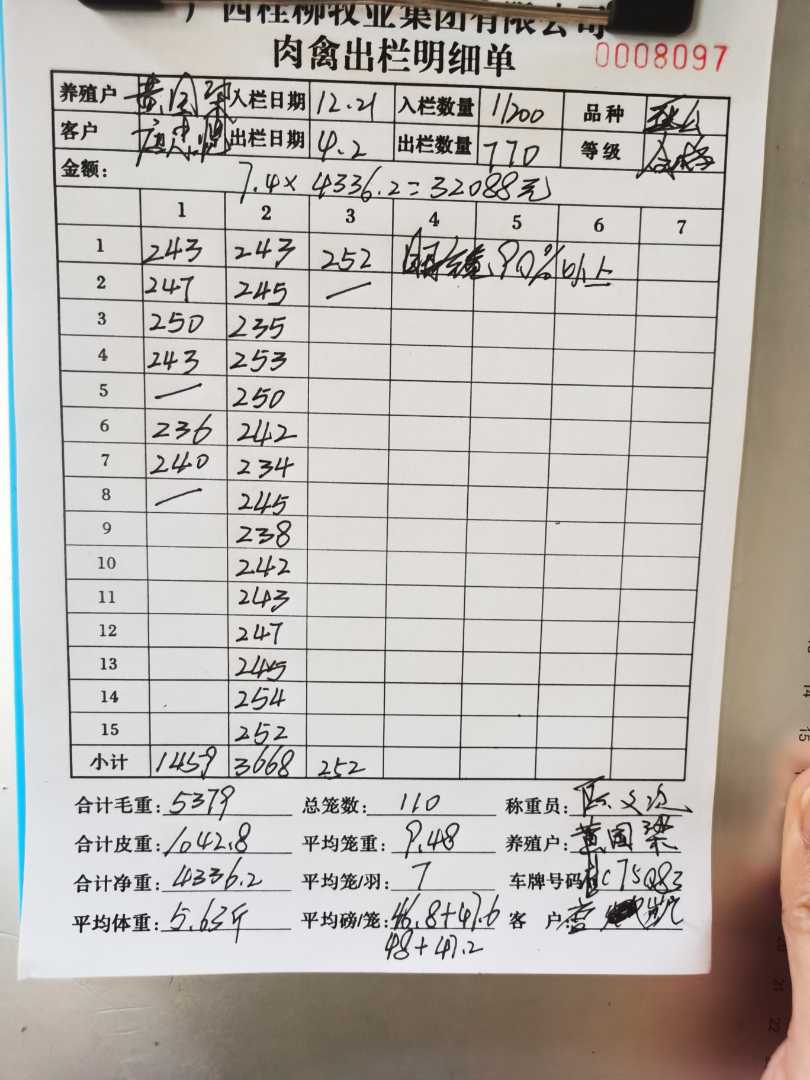 广西桂柳牧业集团有限公司
肉禽出栏明细单 0008097
养殖户 黄国梁 入栏日期 12.21 入栏数量 1200 品种
客户 出栏日期 4.2 出栏数量 770 等级 合格
金额: 7.4×4336.2=32088元
1 2 3 4 5 6 7
1 243 243 252 90%以上
2 247 245 —
3 250 235
4 243 253
5 — 250
6 236 242
7 240 234
8 — 245
9 238
10 242
11 243
12 247
13 245
14 254
15 252
小计 1459 3668 252
合计毛重: 5379 总笼数: 110 称重员:
合计皮重: 1042.8 平均笼重: 9.48 养殖户: 黄国梁
合计净重: 4336.2 平均笼/羽: 7 车牌号码: 桂C75Q83
平均体重: 5.63斤 平均磅/笼: 46.8+47.6 客 户
48+47.2